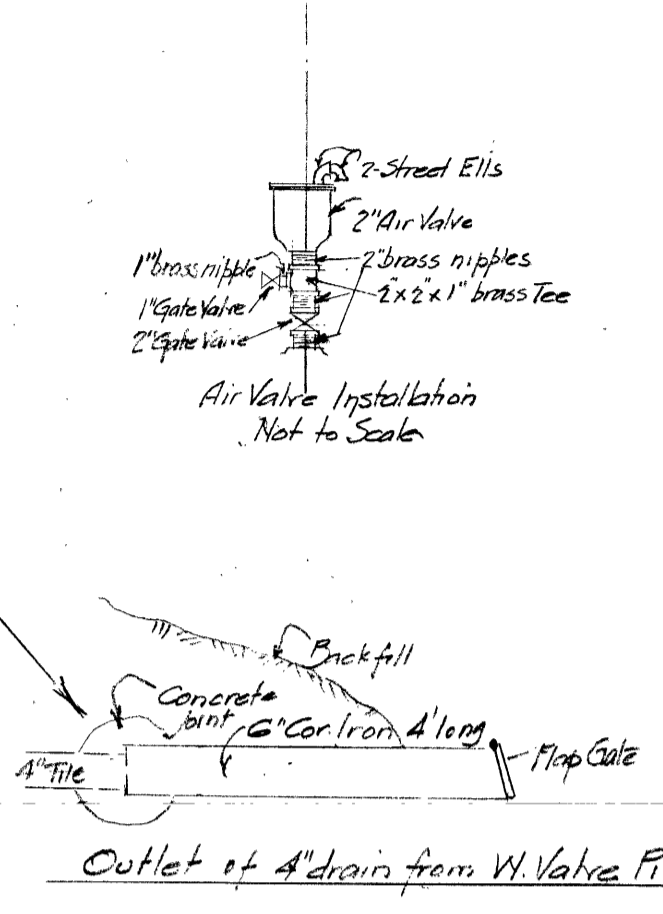 2-Street Ells
2" Air Valve
1" brass nipple
2" brass nipples
2" x 2" x 1" brass Tee
1" Gate Valve
2" Gate Valve
Air Valve Installation
Not to Scale
Backfill
Concrete
joint
6" Cor. Iron 4' long
4" Tile
Flap Gate
Outlet of 4" drain from W. Valve Pi